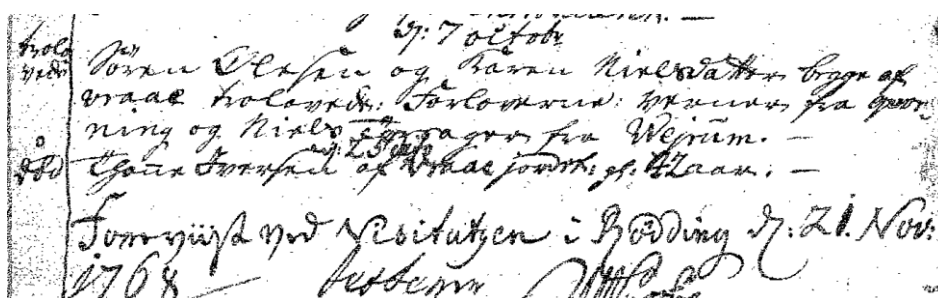 d: 7 octobr
trolovede Sören Olesen og Karen Nielsdatter begge af
vraae trolovede: Forloverne: verner fra
ning og Niels fra Wejrum. —
d: 25
död Thonne Iversen af vraae jordet: gl: 42 aar. —
Foreviist ved Visitatzen i Rödding d: 21. Nov:
1768